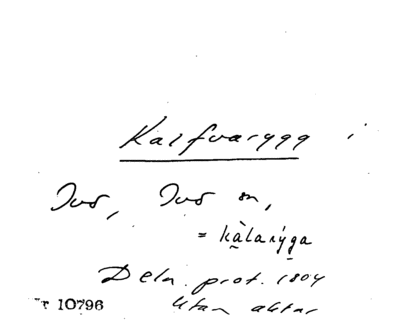 Kalfvarygg i
Ivö, Ivö sn,
= kàlarýga
Deln. prot. 1804
Utan aktnr
r 10796